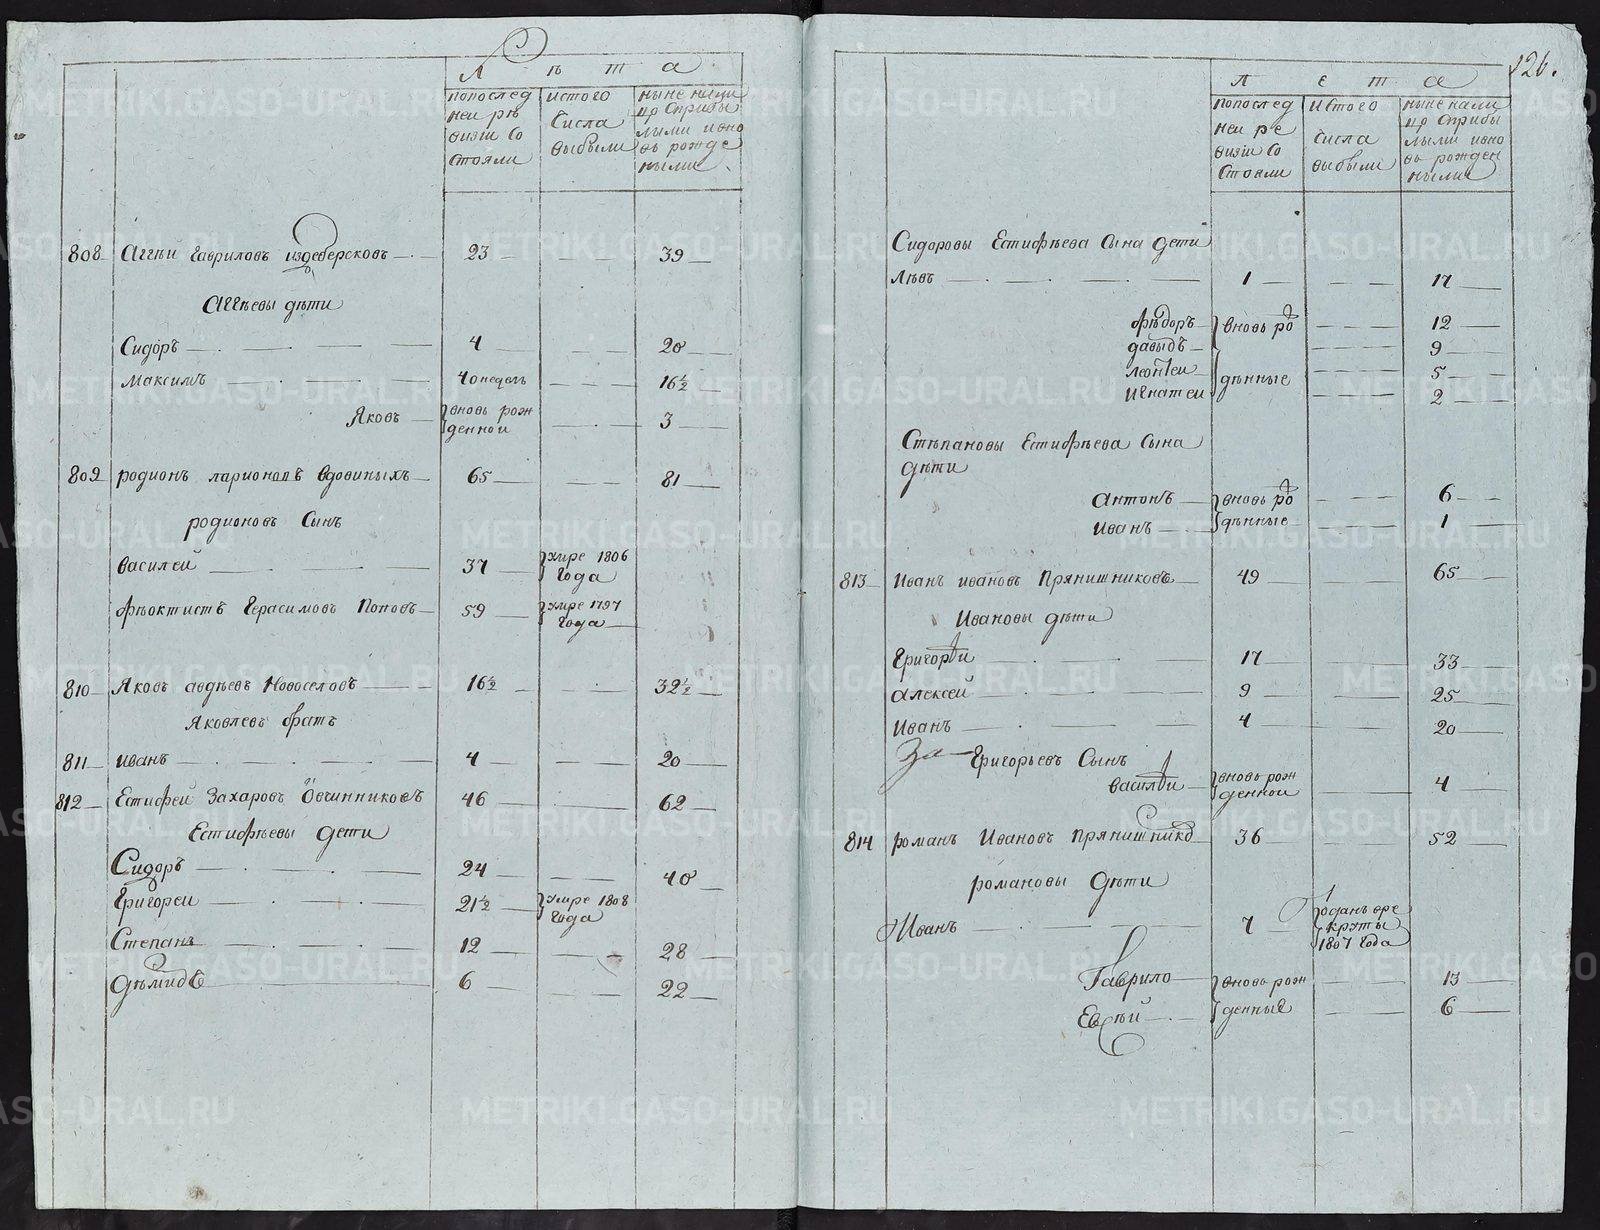 Лѣта
попослед ней ревизiи состояли
истого числа выбыли
ныне налицо сприбылыми ивновь рожденными
808 Аггѣй гавриловъ издеберсковъ 23 39
Аггѣевы дѣти
Сидоръ 4 20
Максимъ 40недель 16½
Яковъ вновь рожденной 3
809 родионъ ларионовъ вдовиныхъ 65 81
родионовъ Сынъ
василей 37 умре 1806 года
Фѣоктистъ Герасимовъ Поповъ 59 умре 1797 года
810 Яковъ авдѣевъ Новоселовъ 16½ 32½
Яковлевъ братъ
811 иванъ 4 20
812 Естифей Захаровъ Овчинниковъ 46 62
Естифѣевы дети
Сидоръ 24 40
Григорей 21½ умре 1808 года
Степанъ 12 28
дѣмидъ 6 22
126.
Лета
попослед ней ревизiи состояли
истого числа выбыли
ныне налицо сприбылыми ивновь рожденными
Сидоровы Естифѣева Сына дети
Лѣвъ 1 17
Фѣдоръ вновь ро 12
давыдъ 9
леонтей дѣнные 5
игнатей 2
Стѣпановы Естифѣева Сына
дѣти
антонъ вновь ро 6
иванъ дѣнные 1
813 Иванъ ивановъ Прянишниковъ 49 65
Ивановы дѣти
Григорѣи 17 33
алексей 9 25
Иванъ 4 20
За Григорьевъ Сынъ
василѣи вновь рожденной 4
814 романъ Ивановъ прянишнико 36 52
романовы дѣти
Иванъ 7 одапъ вре круты 1807 года
Гаврило вновь рож 13
денные 6
METRIKI.GASO-URAL.RU